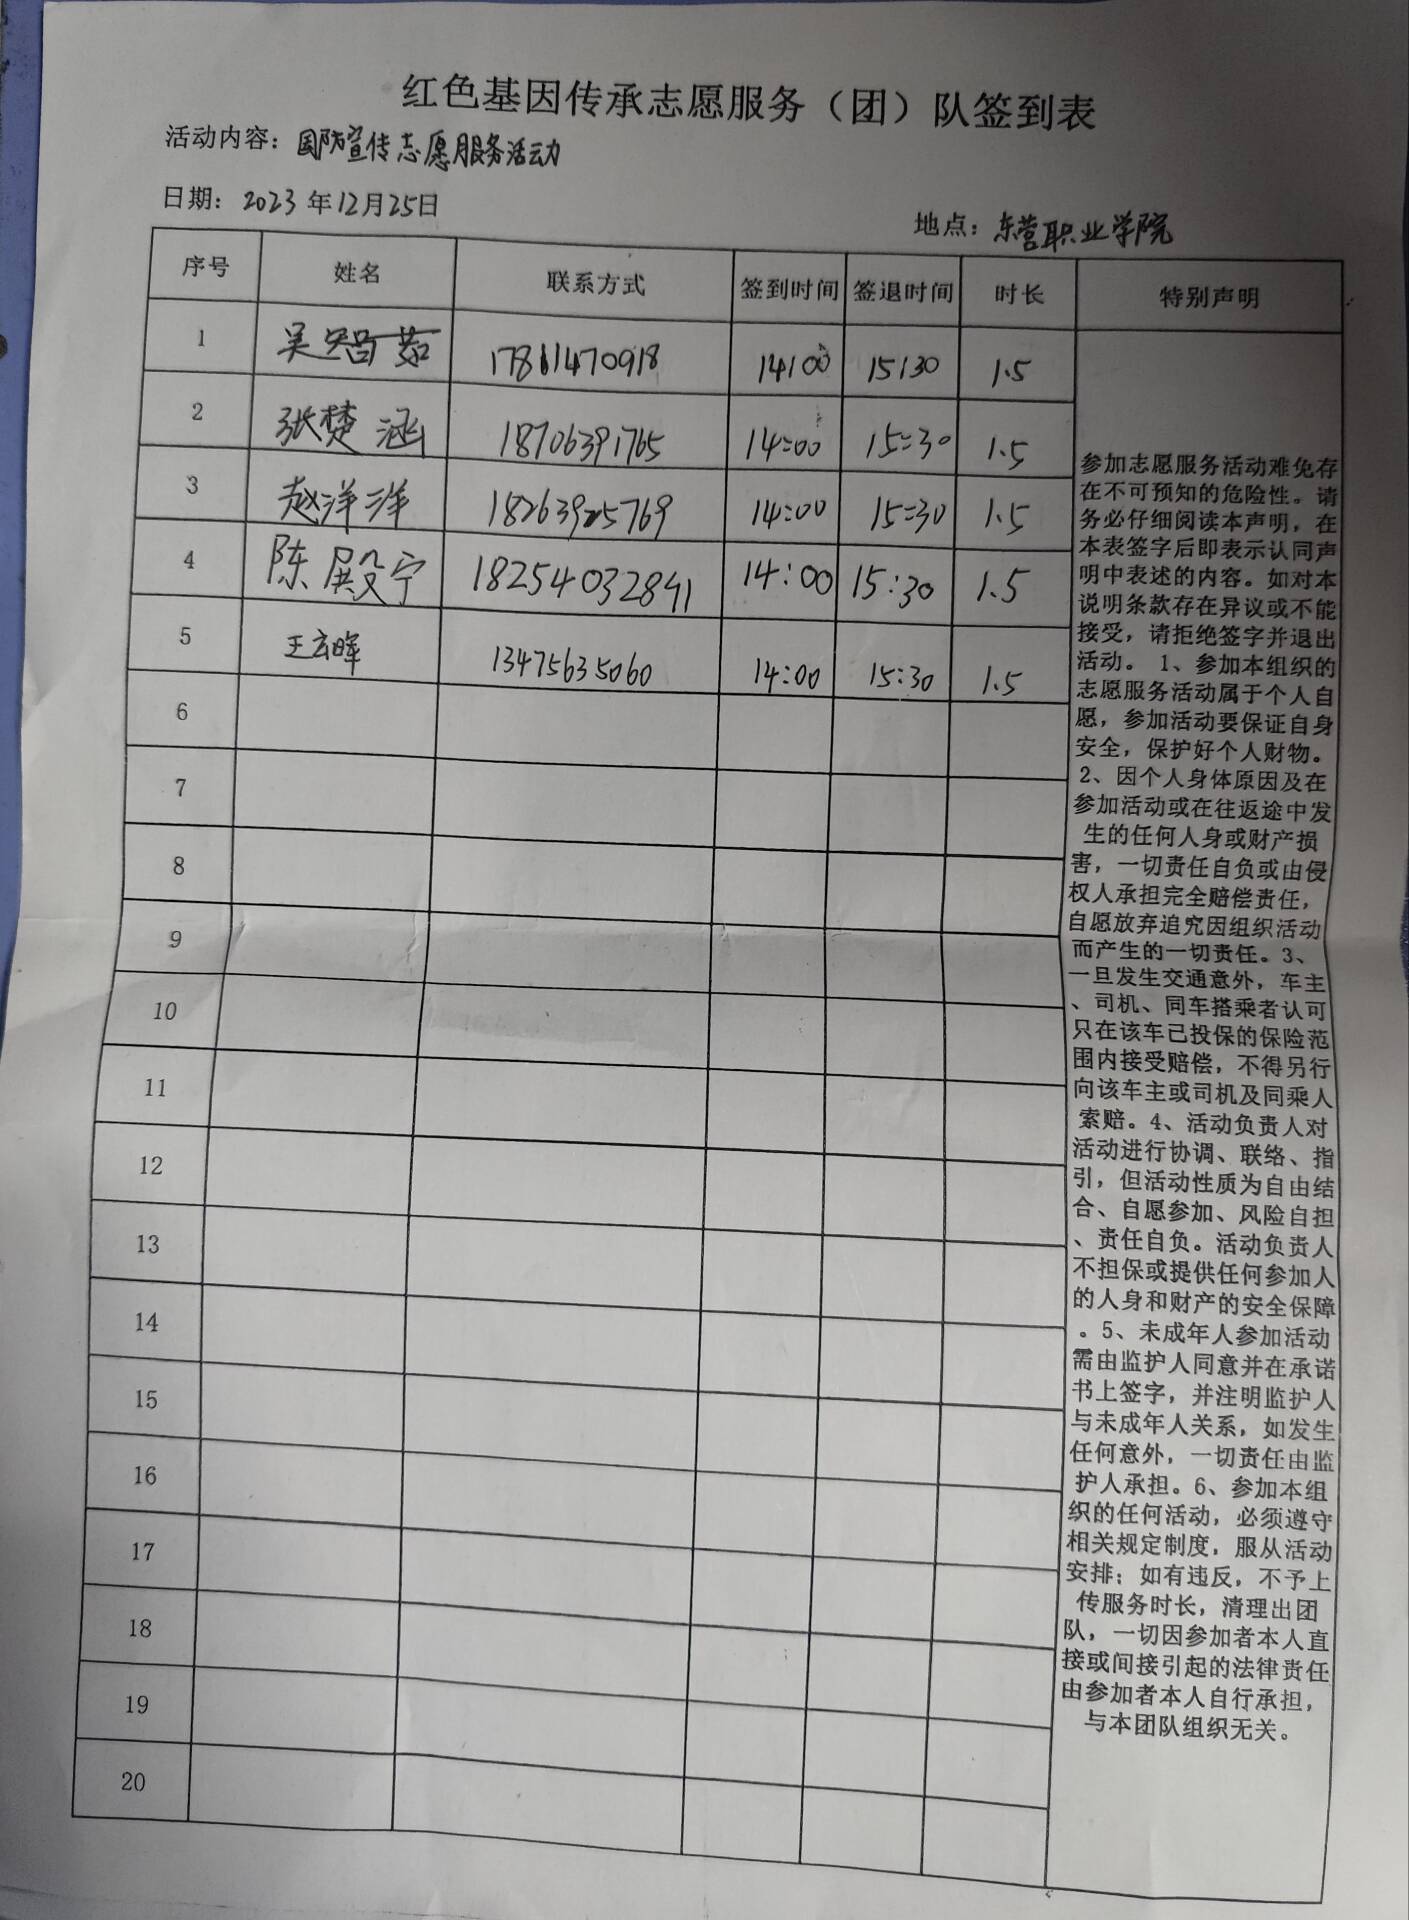 红色基因传承志愿服务（团）队签到表
活动内容：国防宣传志愿服务活动
日期：2023年12月25日
地点：东营职业学院
序号 姓名 联系方式 签到时间 签退时间 时长 特别声明
1 吴智茹 17811470918 14:00 15:30 1.5
2 张楚涵 18706391765 14:00 15:30 1.5
3 赵洋洋 18263925769 14:00 15:30 1.5
4 陈殿宁 18254032841 14:00 15:30 1.5
5 王玄晖 13475635060 14:00 15:30 1.5
6
7
8
9
10
11
12
13
14
15
16
17
18
19
20
参加志愿服务活动难免存
在不可预知的危险性。请
务必仔细阅读本声明，在
本表签字后即表示认同声
明中表述的内容。如对本
说明条款存在异议或不能
接受，请拒绝签字并退出
活动。 1、参加本组织的
志愿服务活动属于个人自
愿，参加活动要保证自身
安全，保护好个人财物。
2、因个人身体原因及在
参加活动或在往返途中发
生的任何人身或财产损
害，一切责任自负或由侵
权人承担完全赔偿责任，
自愿放弃追究因组织活动
而产生的一切责任。3、
一旦发生交通意外，车主
、司机、同车搭乘者认可
只在该车已投保的保险范
围内接受赔偿，不得另行
向该车主或司机及同乘人
索赔。4、活动负责人对
活动进行协调、联络、指
引，但活动性质为自由结
合、自愿参加、风险自担
、责任自负。活动负责人
不担保或提供任何参加人
的人身和财产的安全保障
。5、未成年人参加活动
需由监护人同意并在承诺
书上签字，并注明监护人
与未成年人关系，如发生
任何意外，一切责任由监
护人承担。6、参加本组
织的任何活动，必须遵守
相关规定制度，服从活动
安排；如有违反，不予上
传服务时长，清理出团
队，一切因参加者本人直
接或间接引起的法律责任
由参加者本人自行承担，
与本团队组织无关。